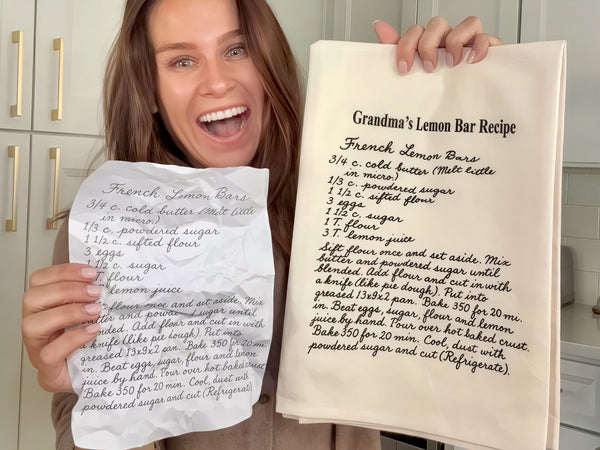 French Lemon Bars
3/4 c. cold butter (Melt little
in micro.)
1/3 c. powdered sugar
1 1/2 c. sifted flour
3 eggs
1 1/2 c. sugar
T. flour
lemon juice
flour once and set aside. Mix
and powd sugar until
ended. Add flour and cut in with
a knife (like pie dough). Put into
greased 13x9x2 pan. Bake 350 for 20 mi
in. Beat eggs, sugar, flour and lemon
juice by hand. Pour over hot baked crust.
Bake 350 for 20 min. Cool, dust with
powdered sugar and cut (Refrigerate)
Grandma's Lemon Bar Recipe
French Lemon Bars
3/4 c. cold butter (Melt little
in micro.)
1/3 c. powdered sugar
1 1/2 c. sifted flour
3 eggs
1 1/2 c. sugar
1 T. flour
3 T. lemon juice
Sift flour once and set aside. Mix
butter and powdered sugar until
blended. Add flour and cut in with
a knife (like pie dough). Put into
greased 13x9x2 pan. Bake 350 for 20 mi.
in. Beat eggs, sugar, flour and lemon
juice by hand. Pour over hot baked crust.
Bake 350 for 20 min. Cool, dust with
powdered sugar and cut (Refrigerate).